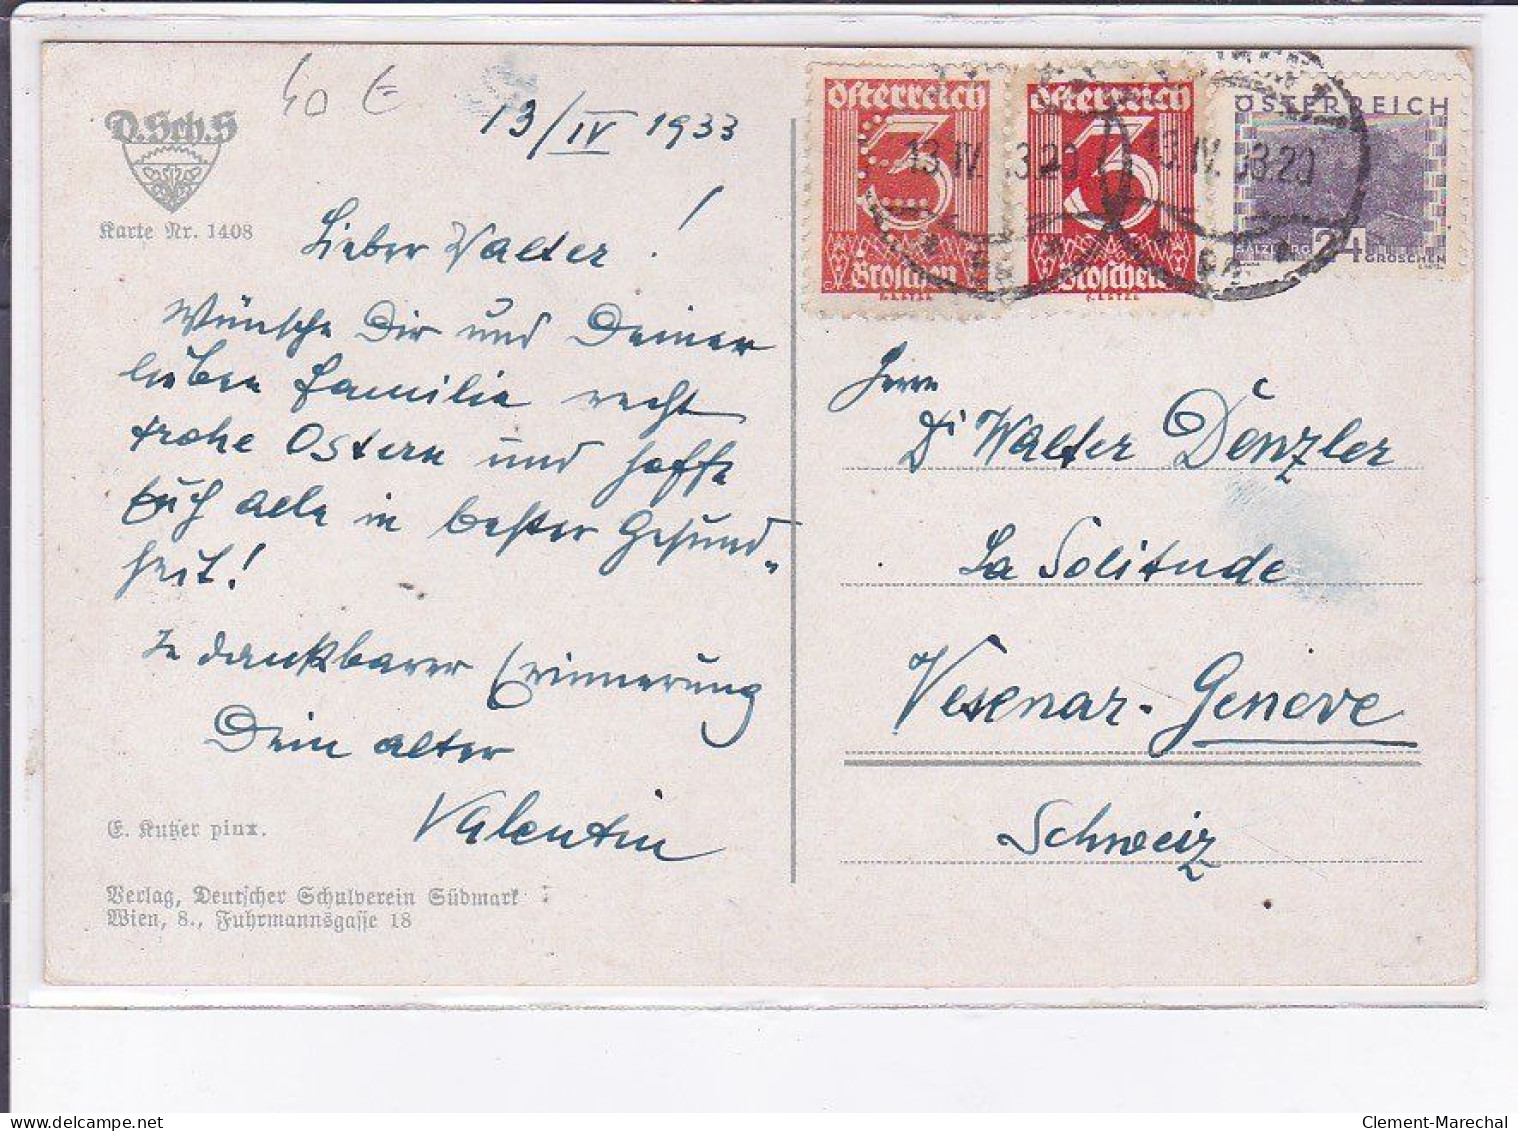 40 €
13/IV 1933
D.Sch.S
Karte Nr. 1408
Lieber Walter!
Wünsche Dir und Deiner
lieben Familie recht
frohe Ostern und hoffe
Euch alle in bester Gesund-
heit!
In dankbarer Erinnerung
Dein alter
Valentin
E. Kutzer pinx.
Verlag, Deutscher Schulverein Südmark
Wien, 8., Fuhrmannsgasse 18
Österreich
3
Groschen
Österreich
3
Groschen
ÖSTERREICH
SALZBURG 24 GROSCHEN
13.IV. 33.20
13.IV. 33.20
Herrn
Dr Walter Denzler
La Solitude
Vesenaz-Geneve
Schweiz
delcampe.net
Clement-Marechal